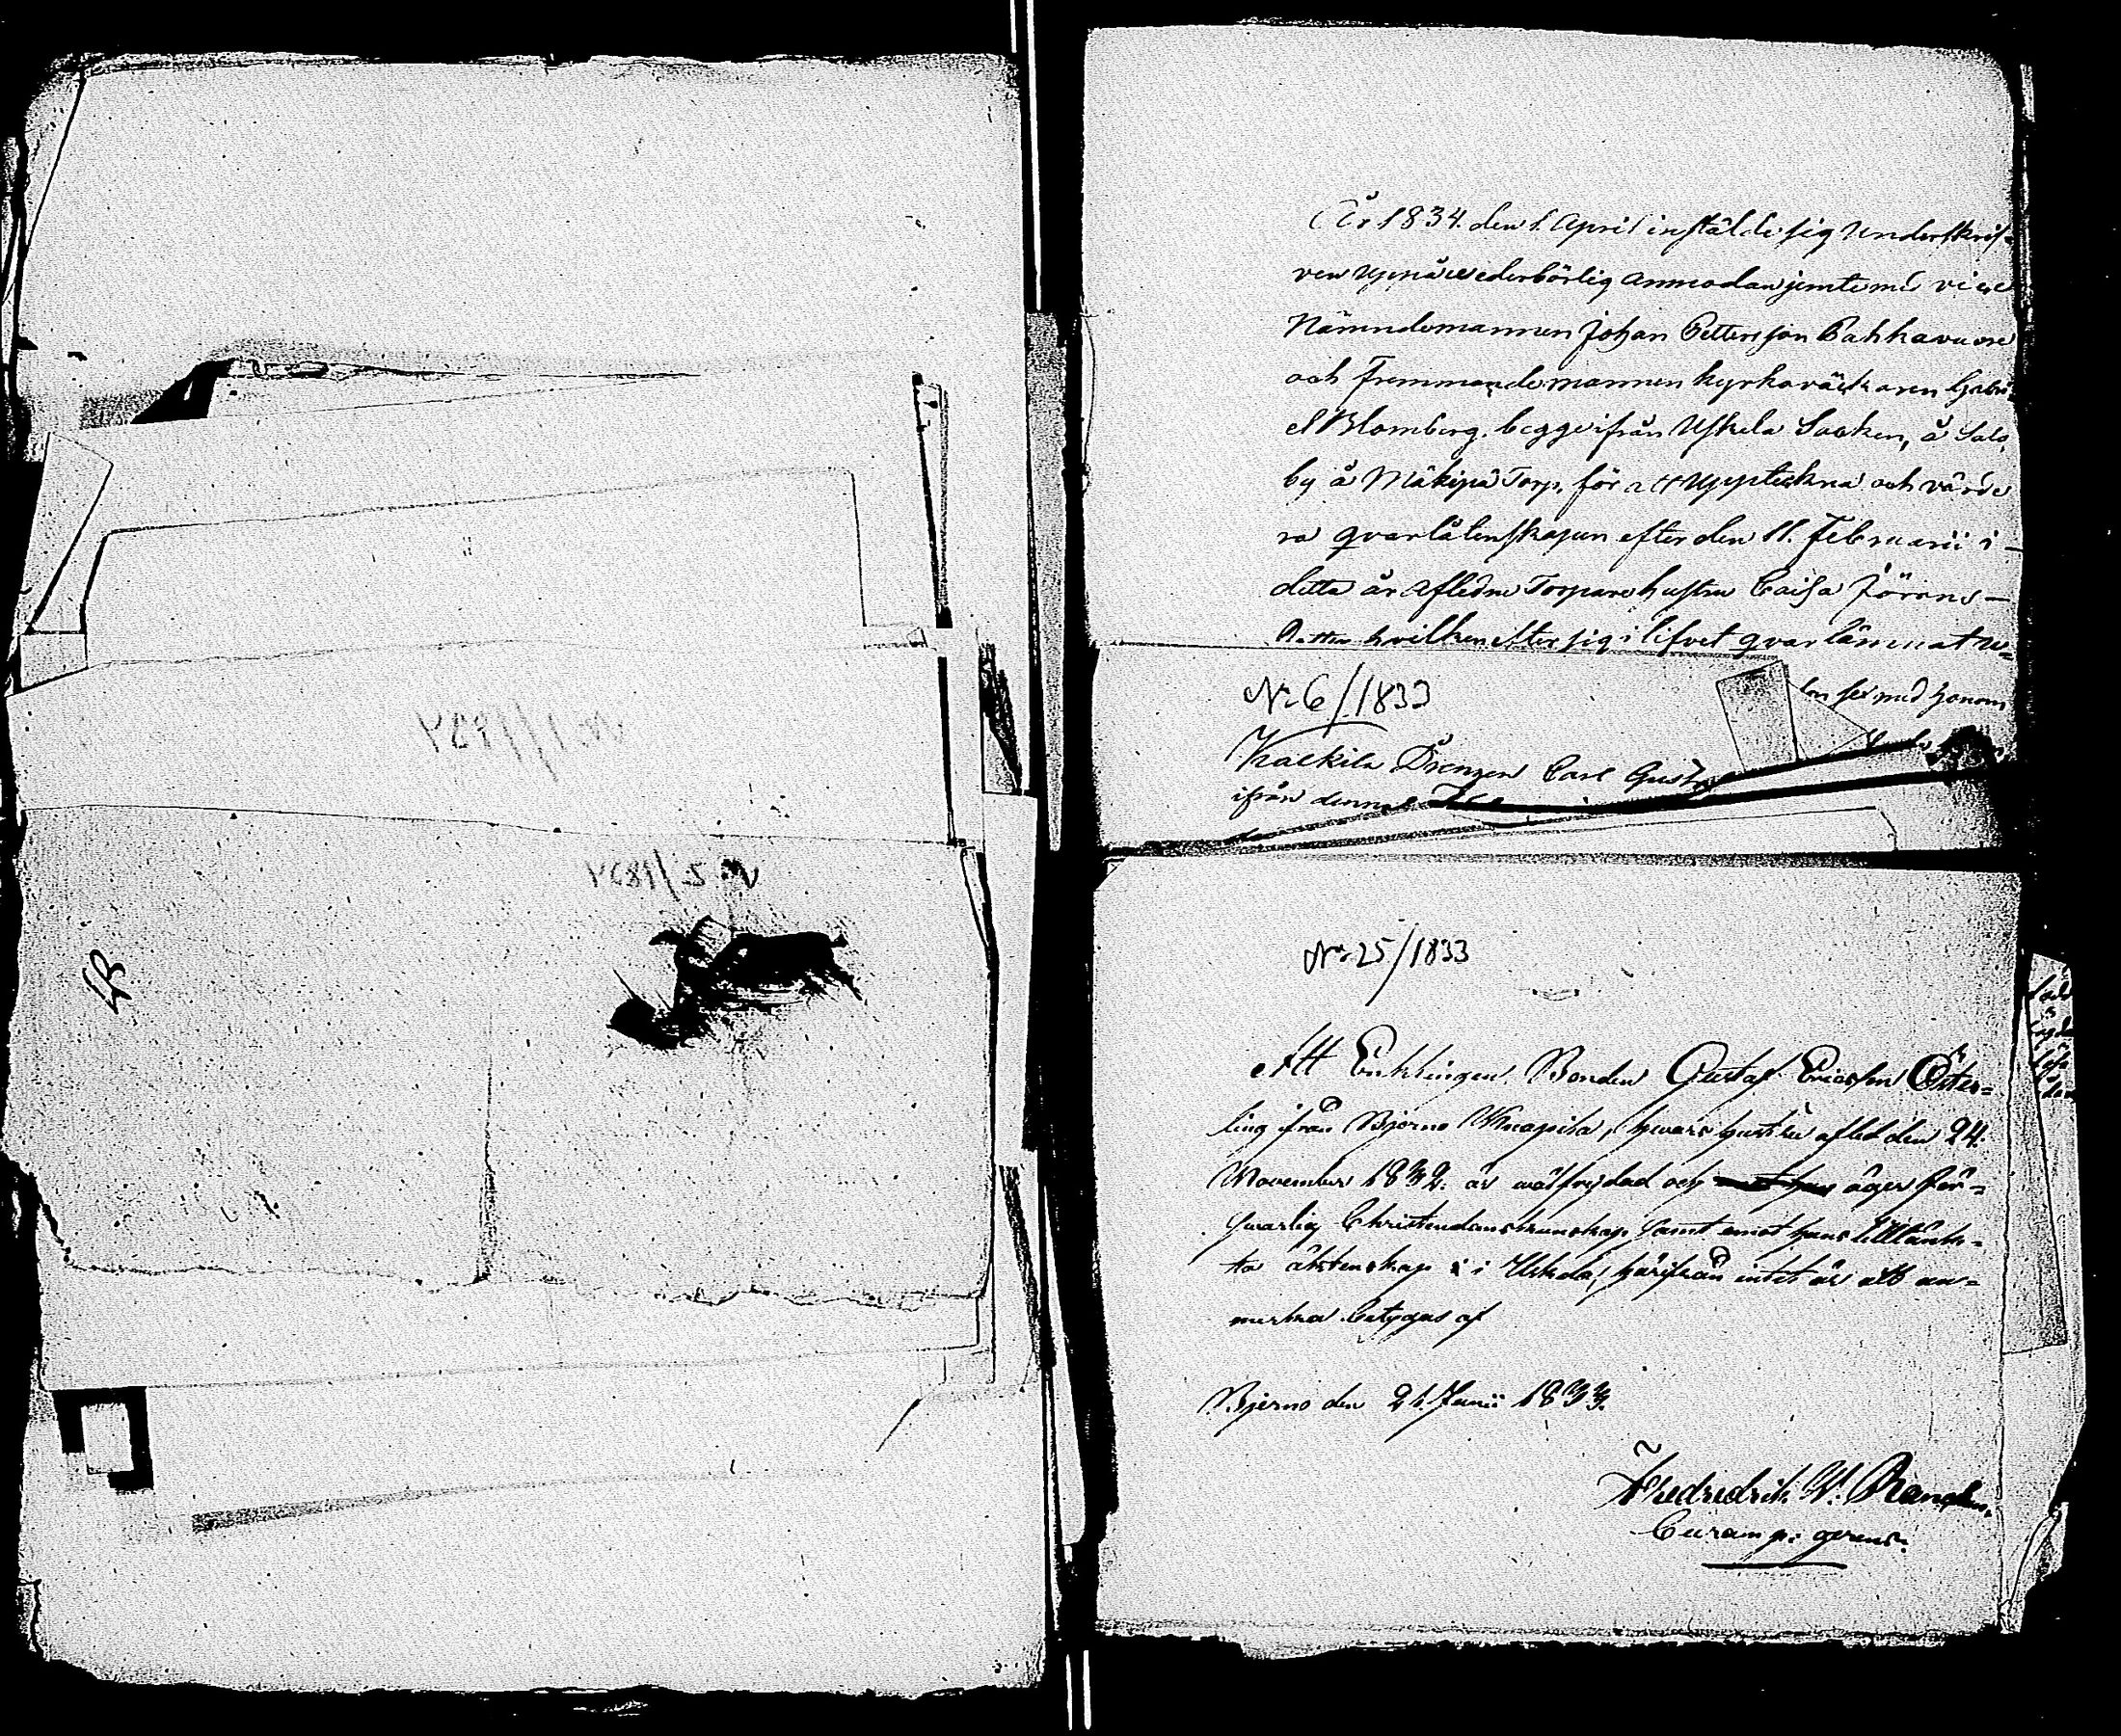 År 1834. den 1. April instälde sig Underskrif-
ven uppå wederbörlig anmodan jemte med vice
Nämndemannen Johan Pettersson Pahkavuore
och Fremmande mannen kyrkoväktaren Gabri-
el Blomberg, begge ifrån Uskela Socken, å Salo
by å Mäkipä Torp, för att Uppteckna och värde
ra qvarlåtenskapen efter den 11. Februarii i-
detta år Aflidne Torpare hustru Caisa Jörans-
dotter hvilken efter sig i lifvet qvarlämnat
med honom
No 6/1833
Drengen Carl Gustaf
ifrån denna
No 1/1834
No 2/1834
No 25/1833
Att Enklingen Bonden Gustaf Ericsson Öster-
ling ifrån Bjerno Knapila, hvars hustru afled den 24.
November 1832. är wälfrejdad och äger för-
swarlig Christendomskunskap samt emot hans tilltänk-
ta äktenskap i Uskela, härifrån intet är att an-
merka betygas af
Bjerno den 21. Junii 1833.
Fredredrik W. Rancken.
Curam p: gerens.